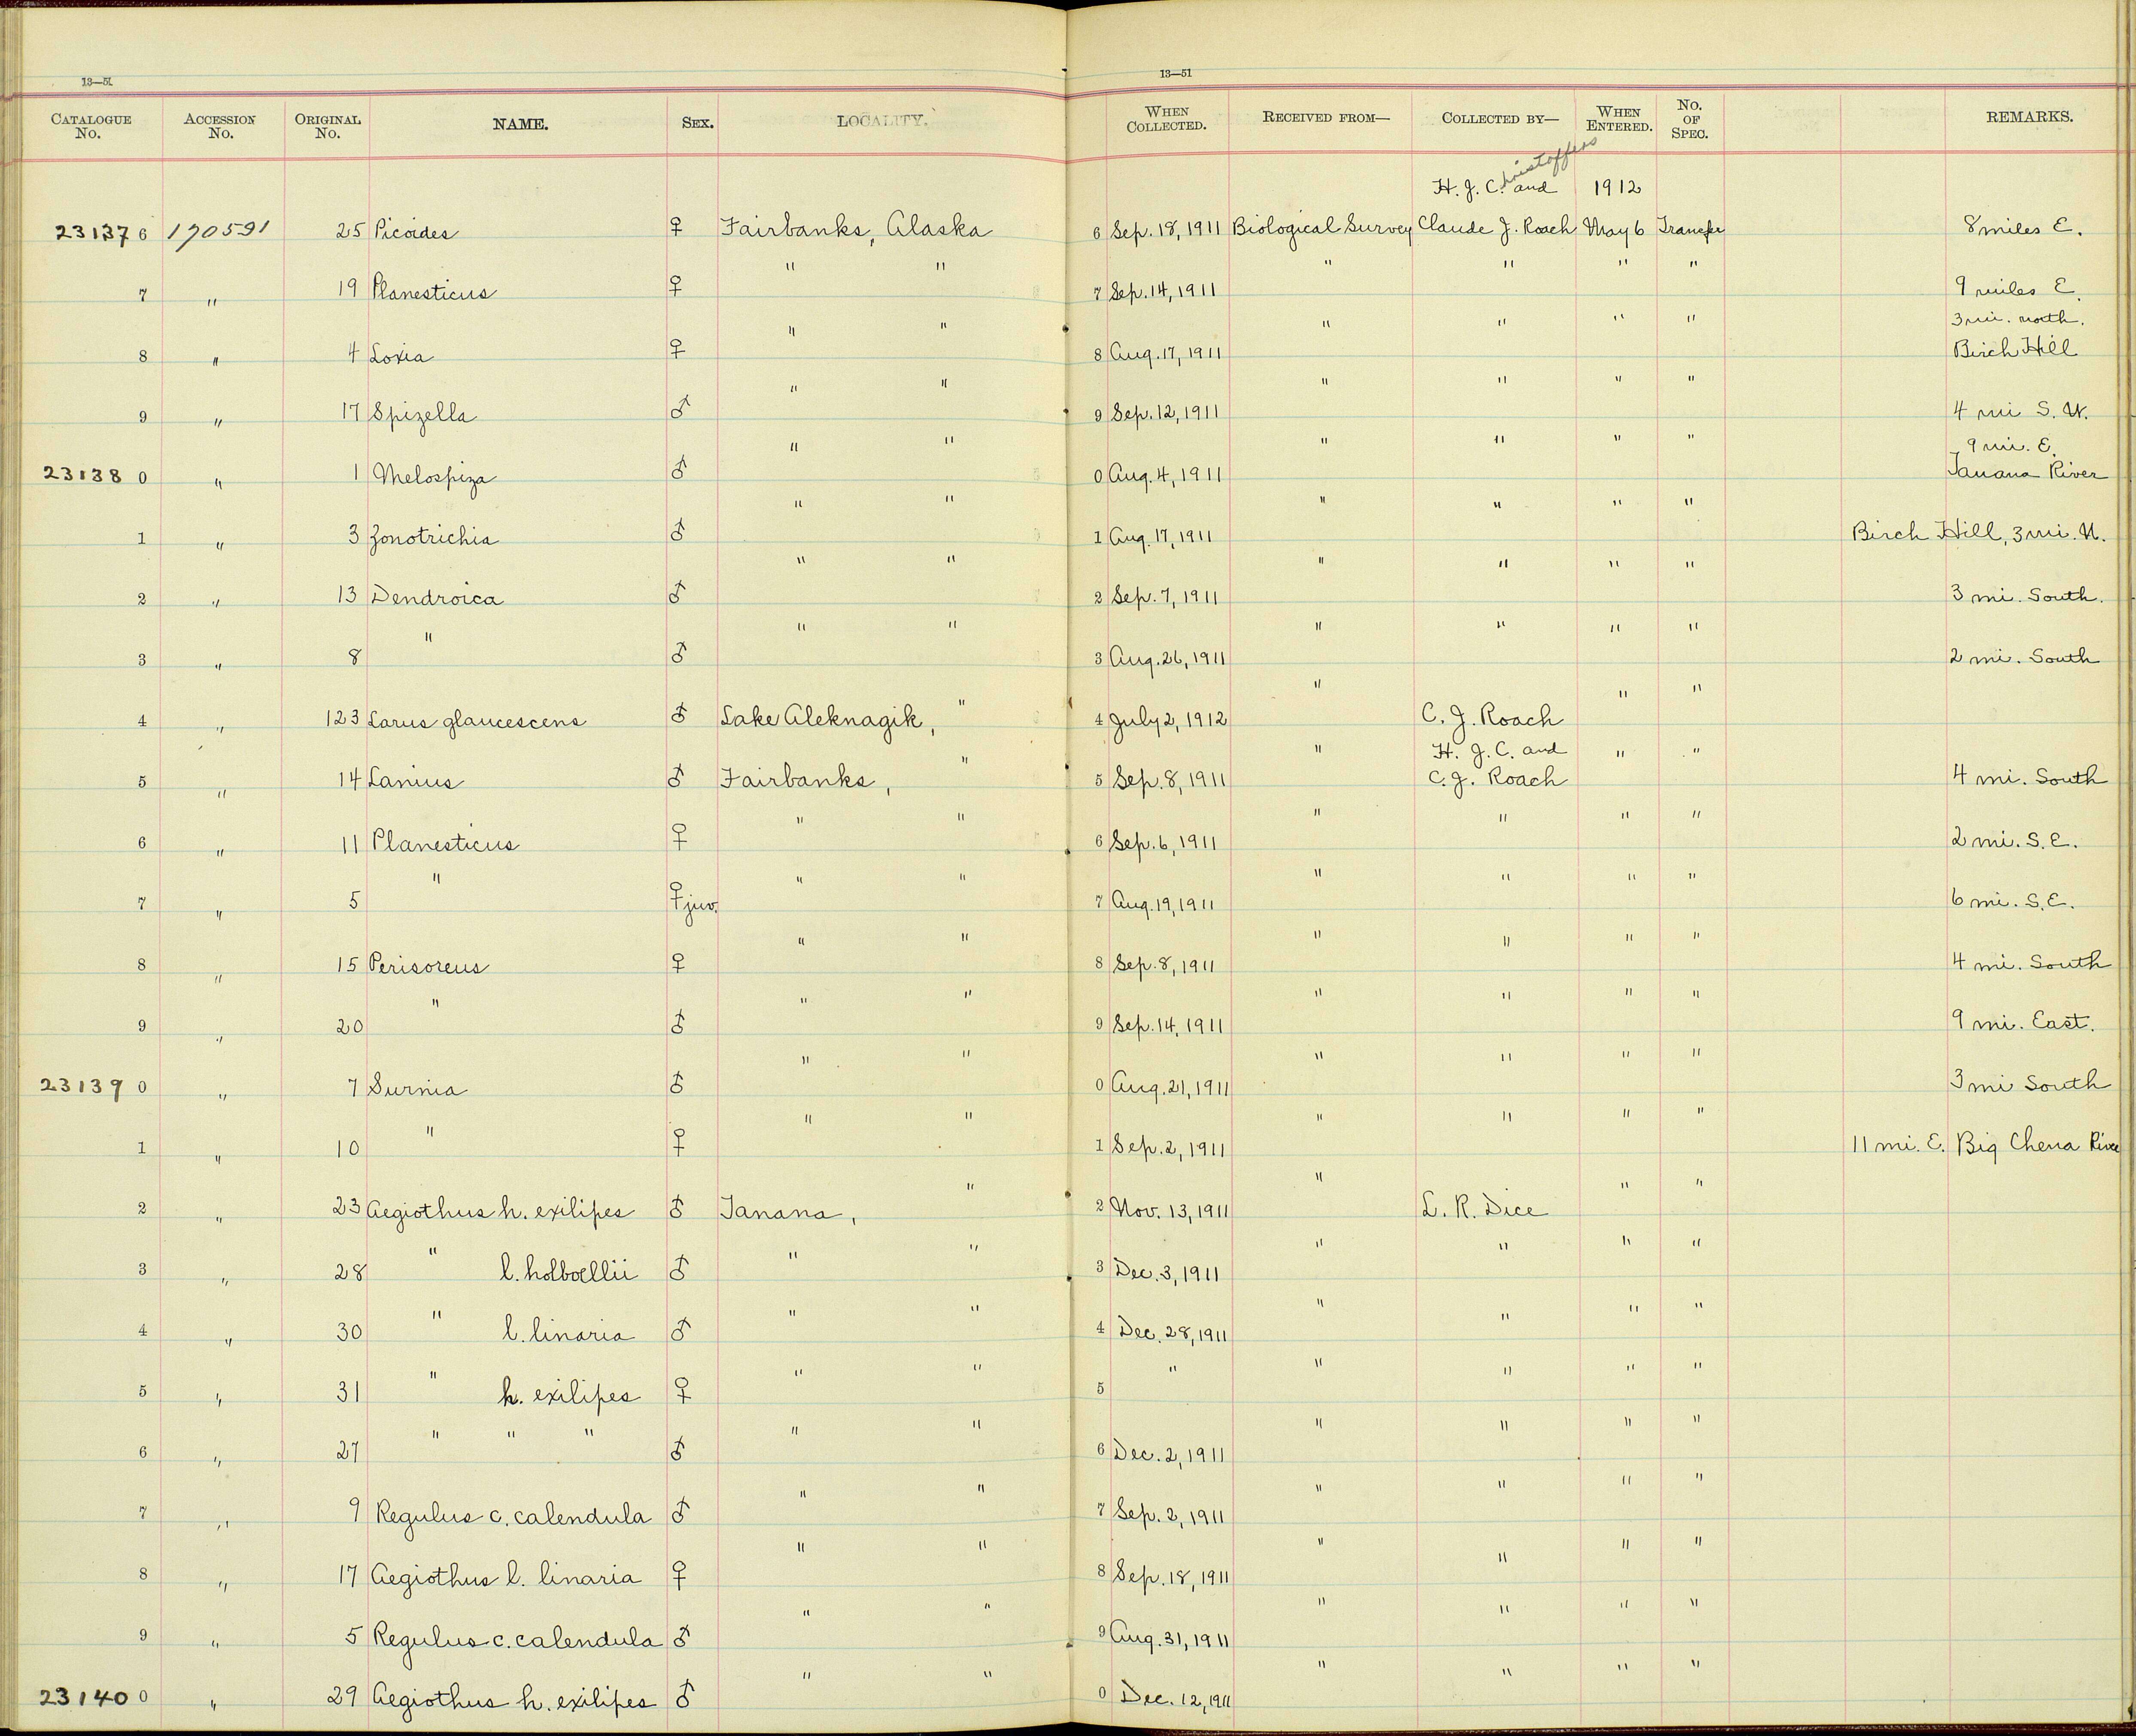 13—51
13—51
CATALOGUE No. ACCESSION No. ORIGINAL No. NAME. SEX. LOCALITY. WHEN COLLECTED. RECEIVED FROM— COLLECTED BY— WHEN ENTERED. No. OF SPEC. REMARKS.
H. J. Christoffers and 1912
231376 170591 25 Picoides ♀ Fairbanks, Alaska 6 Sep. 18, 1911 Biological Survey Claude J. Roach May 6 Transfer 8 miles E.
7 " 19 Planesticus ♀ " " 7 Sep. 14, 1911 " " " " 9 miles E.
3 mi. north.
8 " 4 Loxia ♀ " " 8 Aug. 17, 1911 " " " " Birch Hill
9 " 17 Spizella ♂ " " 9 Sep. 12, 1911 " " " " 4 mi S. W.
9 mi. E.
231380 " 1 Melospiza ♂ " " 0 Aug. 4, 1911 " " " " Tanana River
1 " 3 Zonotrichia ♂ " " 1 Aug. 17, 1911 " " " " Birch Hill, 3 mi. N.
2 " 13 Dendroica ♂ " " 2 Sep. 7, 1911 " " " " 3 mi. South.
3 " 8 " ♂ " " 3 Aug. 26, 1911 " " " " 2 mi. South
4 " 123 Larus glaucescens ♂ Lake Aleknagik, " 4 July 2, 1912 " C. J. Roach " "
H. J. C. and
5 " 14 Lanius ♂ Fairbanks, " 5 Sep. 8, 1911 " C. J. Roach " " 4 mi. South
6 " 11 Planesticus ♀ " " 6 Sep. 6, 1911 " " " " 2 mi. S. E.
7 " 5 " ♀ juv. " " 7 Aug. 19, 1911 " " " " 6 mi. S. E.
8 " 15 Perisoreus ♀ " " 8 Sep. 8, 1911 " " " " 4 mi. South
9 " 20 " ♂ " " 9 Sep. 14, 1911 " " " " 9 mi. East.
231390 " 7 Surnia ♂ " " 0 Aug. 21, 1911 " " " " 3 mi South
1 " 10 " ♀ " " 1 Sep. 2, 1911 " " " " 11 mi. E. Big Chena River
2 " 23 Aegiothus h. exilipes ♂ Tanana, " 2 Nov. 13, 1911 " L. R. Dice " "
3 " 28 " l. holboellii ♂ " " 3 Dec. 3, 1911 " " " "
4 " 30 " l. linaria ♂ " " 4 Dec. 28, 1911 " " " "
5 " 31 " h. exilipes ♀ " " 5 " " " " "
6 " 27 " " " ♂ " " 6 Dec. 2, 1911 " " " "
7 " 9 Regulus c. calendula ♂ " " 7 Sep. 2, 1911 " " " "
8 " 17 Aegiothus l. linaria ♀ " " 8 Sep. 18, 1911 " " " "
9 " 5 Regulus c. calendula ♂ " " 9 Aug. 31, 1911 " " " "
231400 " 29 Aegiothus h. exilipes ♂ " " 0 Dec. 12, 1911 " " " "